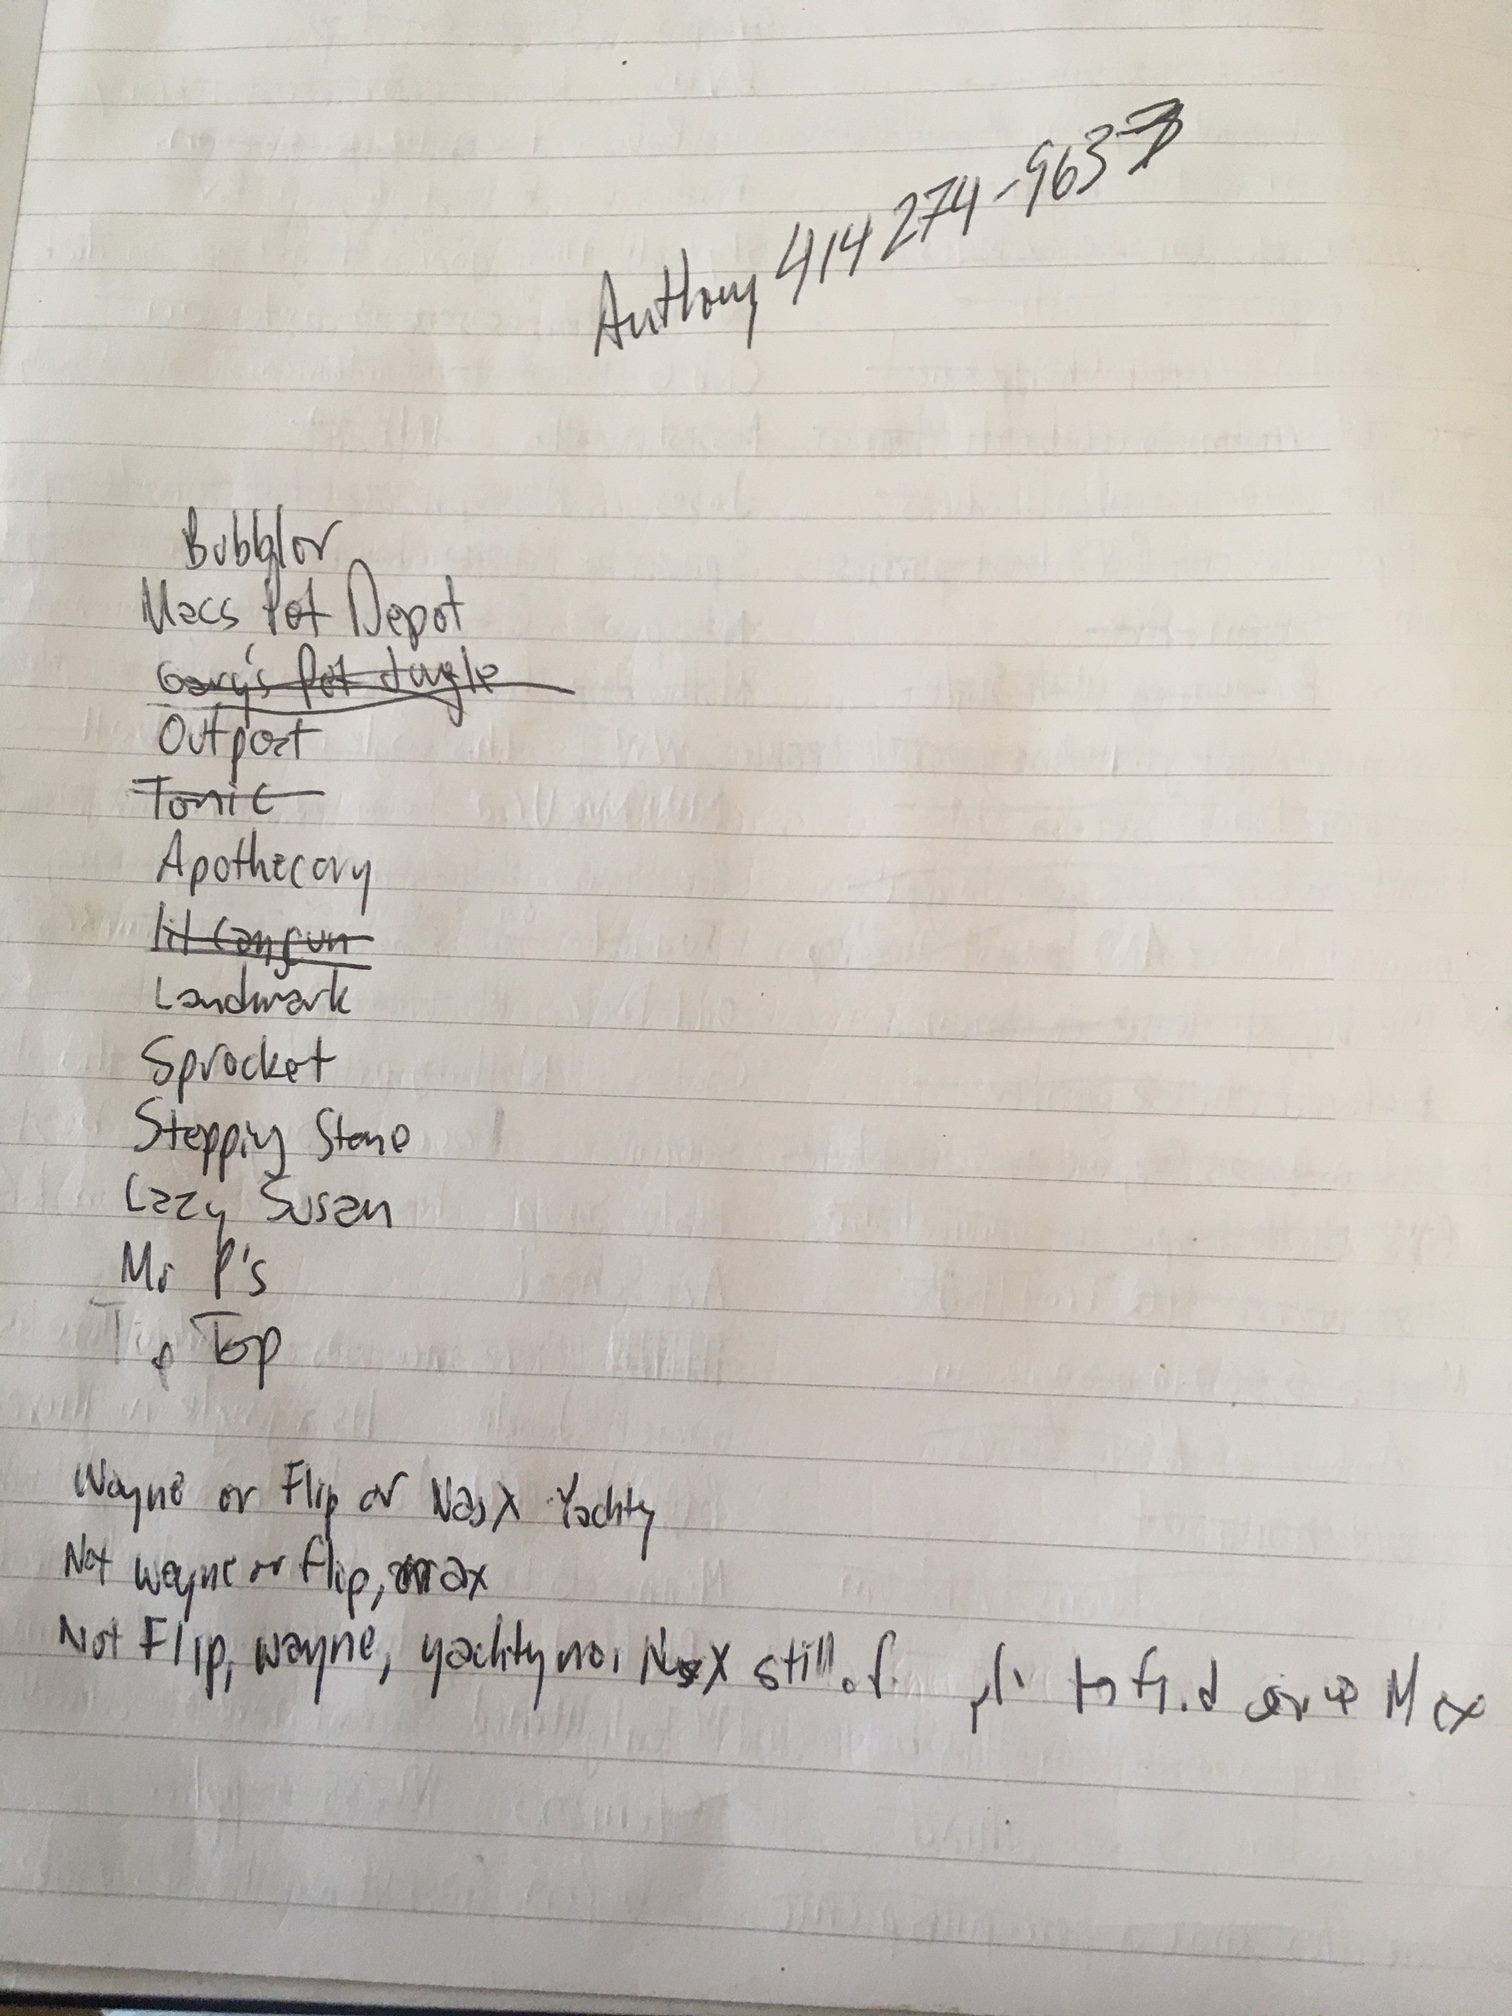 Anthony 414 274-963
Bubblor
Macs Pot Depot
Gary's Pot Jungle
Outpost
Tonic
Apothecary
lit Canyun
Landmark
Sprocket
Stepping Stone
Lazy Susan
Mr P's
Tip Top
Wayne or Flip or Nas X Yachty
Not wayne or flip, max
Not Flip, wayne, yachty no, Nas X still to find Max